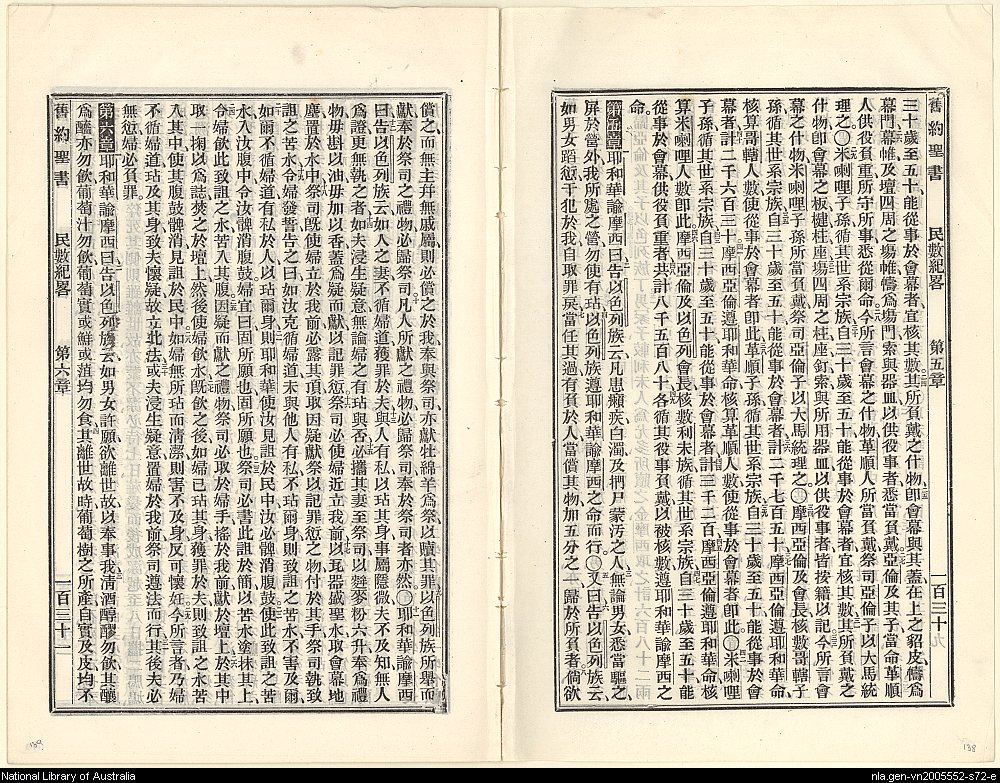 舊約聖書 民數紀畧 第五章 一百三十
三十歲至五十能從事於會幕者宜核其數其所負戴之什物卽會幕與其蓋在上之貂皮幬爲
幕門幕帷及壇四周之場帷幬爲場門索與器皿以供役事者悉當負戴亞倫及其子當命革順
人供役負重所守所事悉從爾命今所言會幕之什物革順人所當負戴祭司亞倫子以大馬統
理之〇米喇哩子孫循其世系宗族自三十歲至五十能從事於會幕者宜核其數其所負戴之
什物卽會幕之板楗柱座場四周之柱座釘索與所用器皿以供役事者皆按籍以記今所言會
幕之什物米喇哩子孫所當負戴祭司亞倫子以大馬統理之〇摩西亞倫及會長核數哥轄子
孫循其世系宗族自三十歲至五十能從事於會幕者計二千七百五十摩西亞倫遵耶和華命
核算哥轄人數使從事於會幕者卽此革順子孫循其世系宗族自三十歲至五十能從事於會
幕者計二千六百三十摩西亞倫遵耶和華命核算革順人數使從事於會幕者卽此〇米喇哩
子孫循其世系宗族自三十歲至五十能從事於會幕者計三千二百摩西亞倫遵耶和華命核
算米喇哩人數卽此摩西亞倫及以色列會長核數利未族循其世系宗族自三十歲至五十能
從事於會幕供役負重者共計八千五百八十各循其役事負戴以被核數遵耶和華諭摩西之
命
第五章耶和華諭摩西曰告以色列族云凡患癩疾白濁及捫尸蒙汚之人無論男女悉當驅之
屏於營外我所處之營勿使有玷以色列族遵耶和華諭摩西之命而行〇又曰告以色列族云
如男女蹈愆干犯於我自取罪戾當任其過有負於人當償其物加五分之一歸於所負者倘欲
償之而無主幷無戚屬則必償之於我奉與祭司亦獻牡綿羊爲祭以贖其罪以色列族所舉而
獻奉於祭司之禮物必歸祭司凡人所獻之禮物必歸祭司奉於祭司者亦然〇耶和華諭摩西
曰告以色列族云如人之妻不循婦道獲罪於夫與人有私以玷其身事屬隱微夫不及知無人
爲證更無執之者如夫浸生疑意無論婦之有玷與否必攜其妻至祭司以麰麥粉六升奉爲禮
物毋斟以油毋加以香蓋爲疑而獻以記罪愆祭司必使婦近立我前以瓦器盛聖水取會幕地
塵置於水中祭司旣使婦立於我前必露其頂取因疑獻祭以記罪愆之物付於其手祭司執致
詛之苦水令婦發誓告之曰如汝克循婦道未與他人有私不玷爾身則致詛之苦水不害及爾
如爾不循婦道有私於人以玷爾身則耶和華使汝見詛於民中汝必髀消腹鼓使此致詛之苦
水入汝腹中令汝髀消腹鼓婦宜曰固所願也固所願也祭司必書此詛於簡以苦水塗抹其上
令婦飲此致詛之水苦入其腹因疑而獻之禮物祭司必取於婦手搖於我前獻於壇上於其中
取一掬以爲誌焚之於壇上然後使婦飲水旣飲之後如婦已玷其身獲罪於夫則致詛之水苦
入其中使其腹鼓髀消見詛於民中如婦無所玷而淸潔則害不及身反可懷妊今所言者乃婦
不循婦道玷及其身致夫懷疑故立此法或夫浸生疑意置婦於我前祭司遵法而行其後夫必
無愆婦必負罪
第六章耶和華諭摩西曰告以色列族云如男女許願欲離世故以奉事我淸酒醇醪勿飲其釀
爲醯亦勿飲葡萄汁勿飲葡萄實或鮮或濇均勿食其離世故時葡萄樹之所產自實及皮均不
舊約聖書 民數紀畧 第六章 一百三十一
139
138
National Library of Australia
nla.gen-vn2005552-s72-e